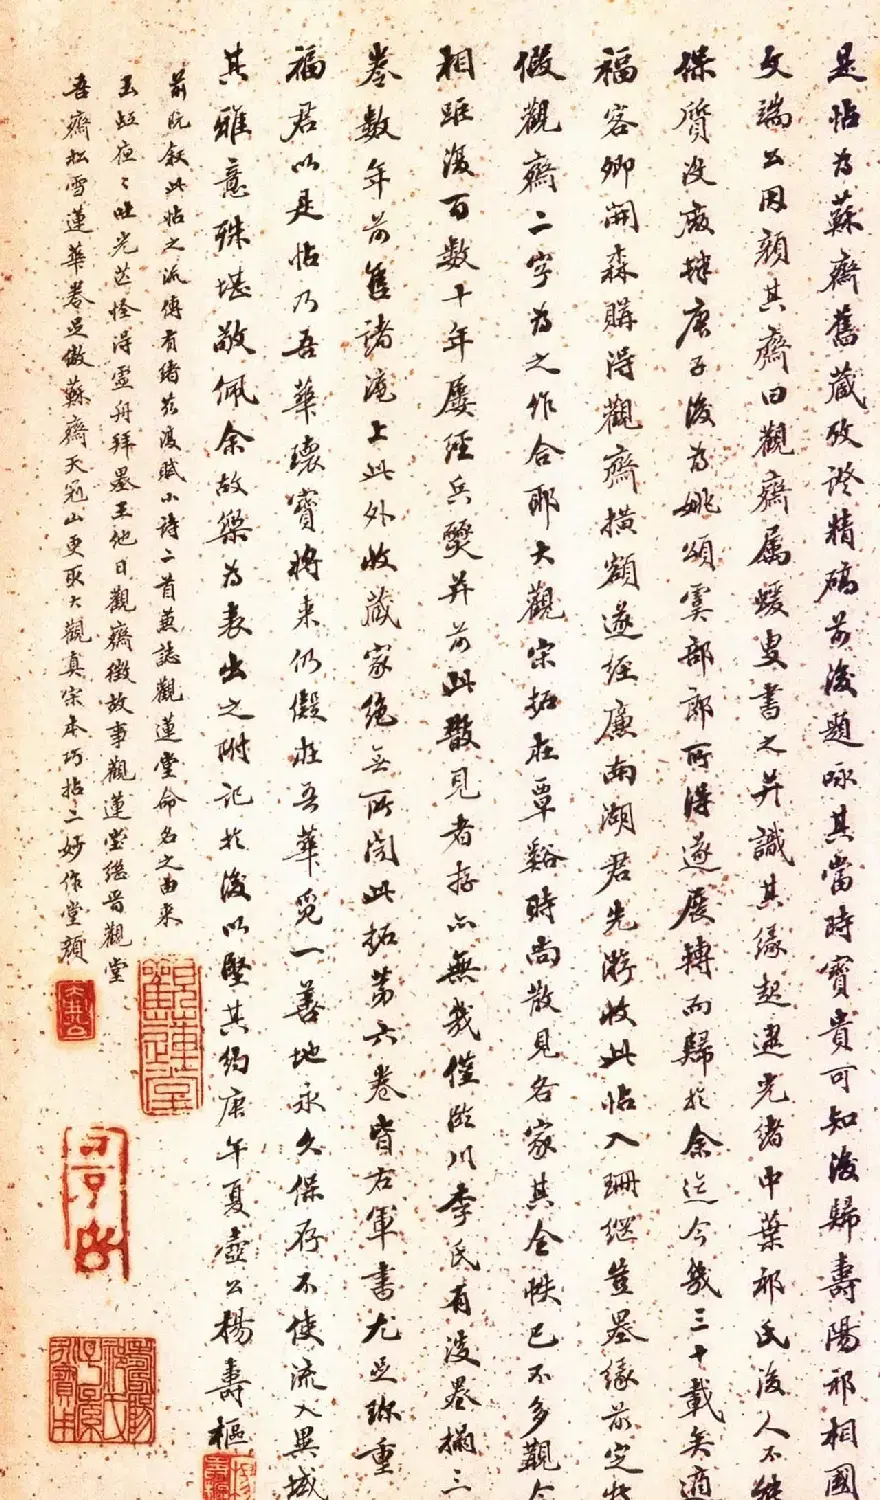 是帖為蘇齋舊藏攷證精碻前後題咏其當時寶貴可知後歸壽陽祁相國
文端公因顏其齋曰觀齋屬蝯叟書之并識其緣起逮光緒中葉祁氏後人不
保質沒廠肆庚子後為姚頌虞部郎所得遂展轉而歸於余迄今幾三十載矣適
福客卿開森購得觀齋橫額遂經廉南湖君先游收此帖入珊繼豈墨緣前定
假觀齋二字為之作合耶大觀宋拓在覃谿時尚散見各家其全帙已不多觀今
相距後百數十年屢經兵燹并前此散見者存亡無幾僅臨川李氏有淡墨搨三
卷數年前售諸滬上此外收藏家絕無所聞此拓第六卷皆右軍書尤足珍重
福君以是帖乃吾華瓌寶將來仍儗在吾華覓一善地永久保存不使流入異域
其雅意殊堪敬佩余故樂為表出之附記於後以堅其約庚午夏壺公楊壽樞
前既敍此帖之流傳有緒茲復賦小詩二首兼誌觀蓮堂命名之由來
玉虹夜夜吐光芒怪得靈舟拜墨王他日觀齋徵故事觀蓮堂繼晉觀堂
吾齋松雪蓮華卷足傲蘇齋天冠山更取大觀真宋本巧拈二妙作堂顏
觀蓮堂